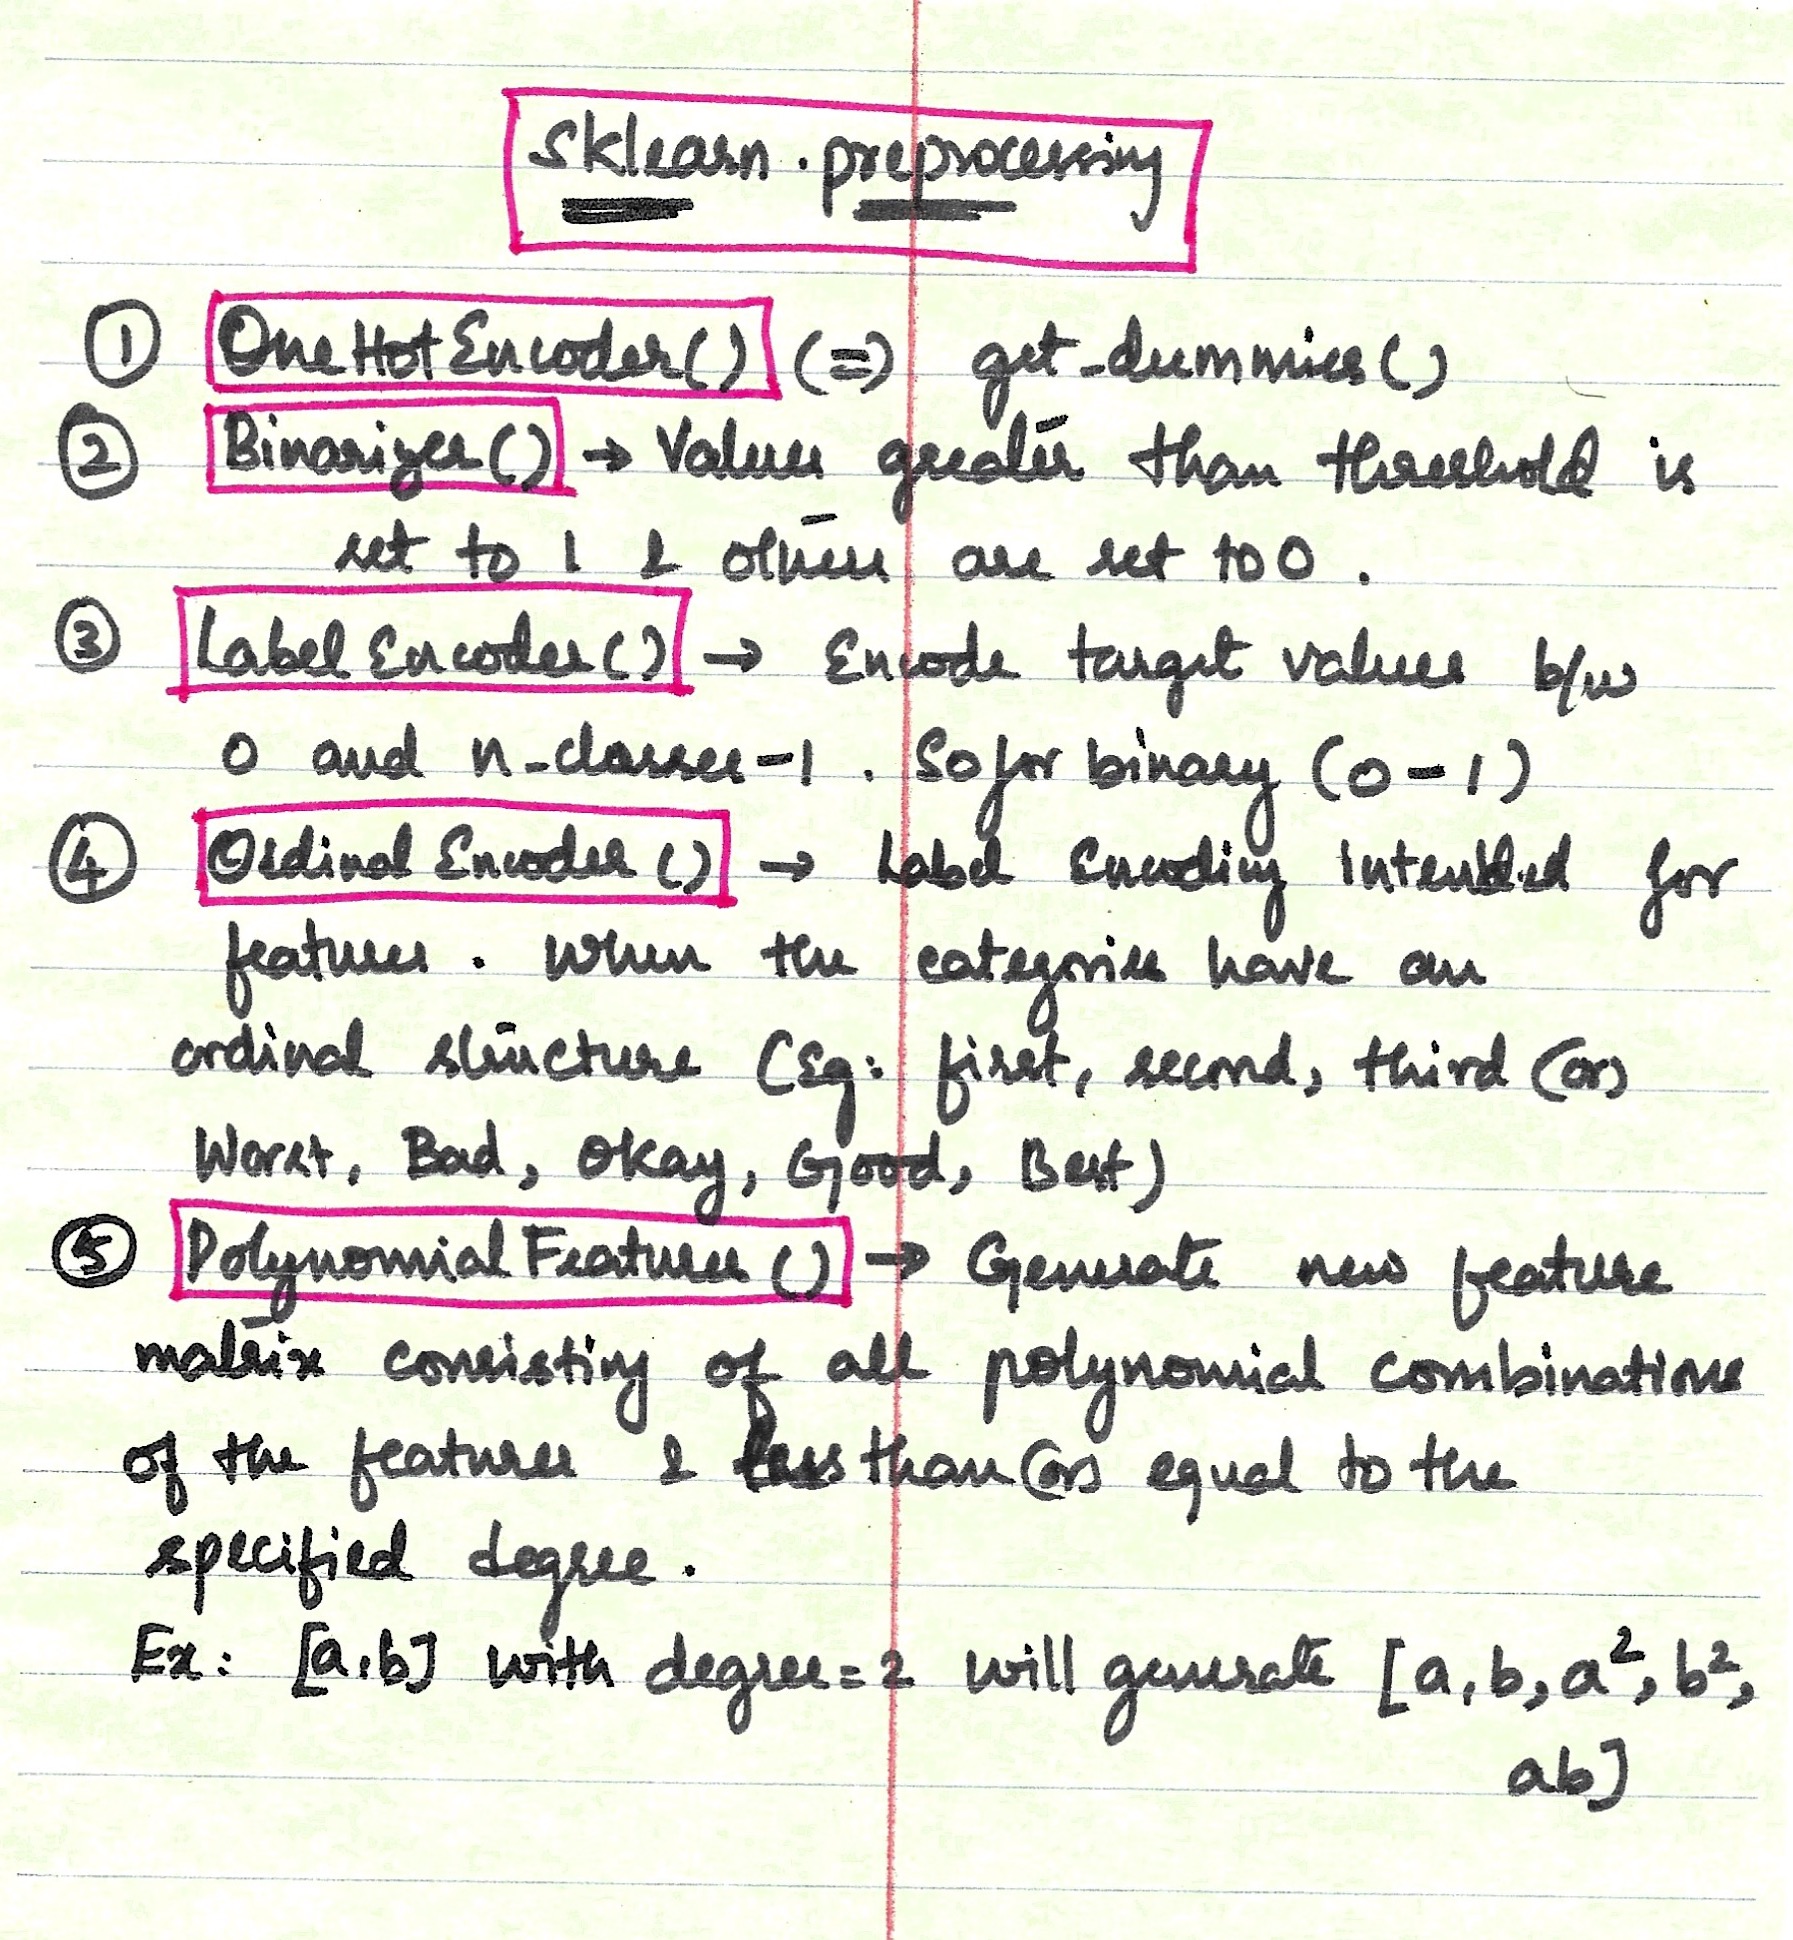 sklearn.preprocessing
① OneHotEncoder() (=) get_dummies()
② Binarizer() → Values greater than threshold is
set to 1 & others are set to 0.
③ Label Encoder() → Encode target values b/w
0 and n_classes-1. So for binary (0-1)
④ Ordinal Encoder() → Label Encoding intended for
features. When the categories have an
ordinal structure (Eg: first, second, third (or)
Worst, Bad, Okay, Good, Best)
⑤ Polynomial Features() → Generate new feature
matrix consisting of all polynomial combinations
of the features & less than (or) equal to the
specified degree.
Ex: [a,b] with degree=2 will generate [a, b, a², b²,
ab]